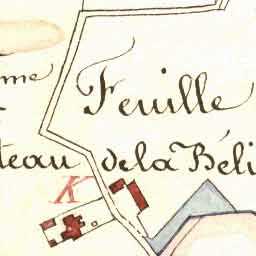 Feuille
me
teau de la Béli
K